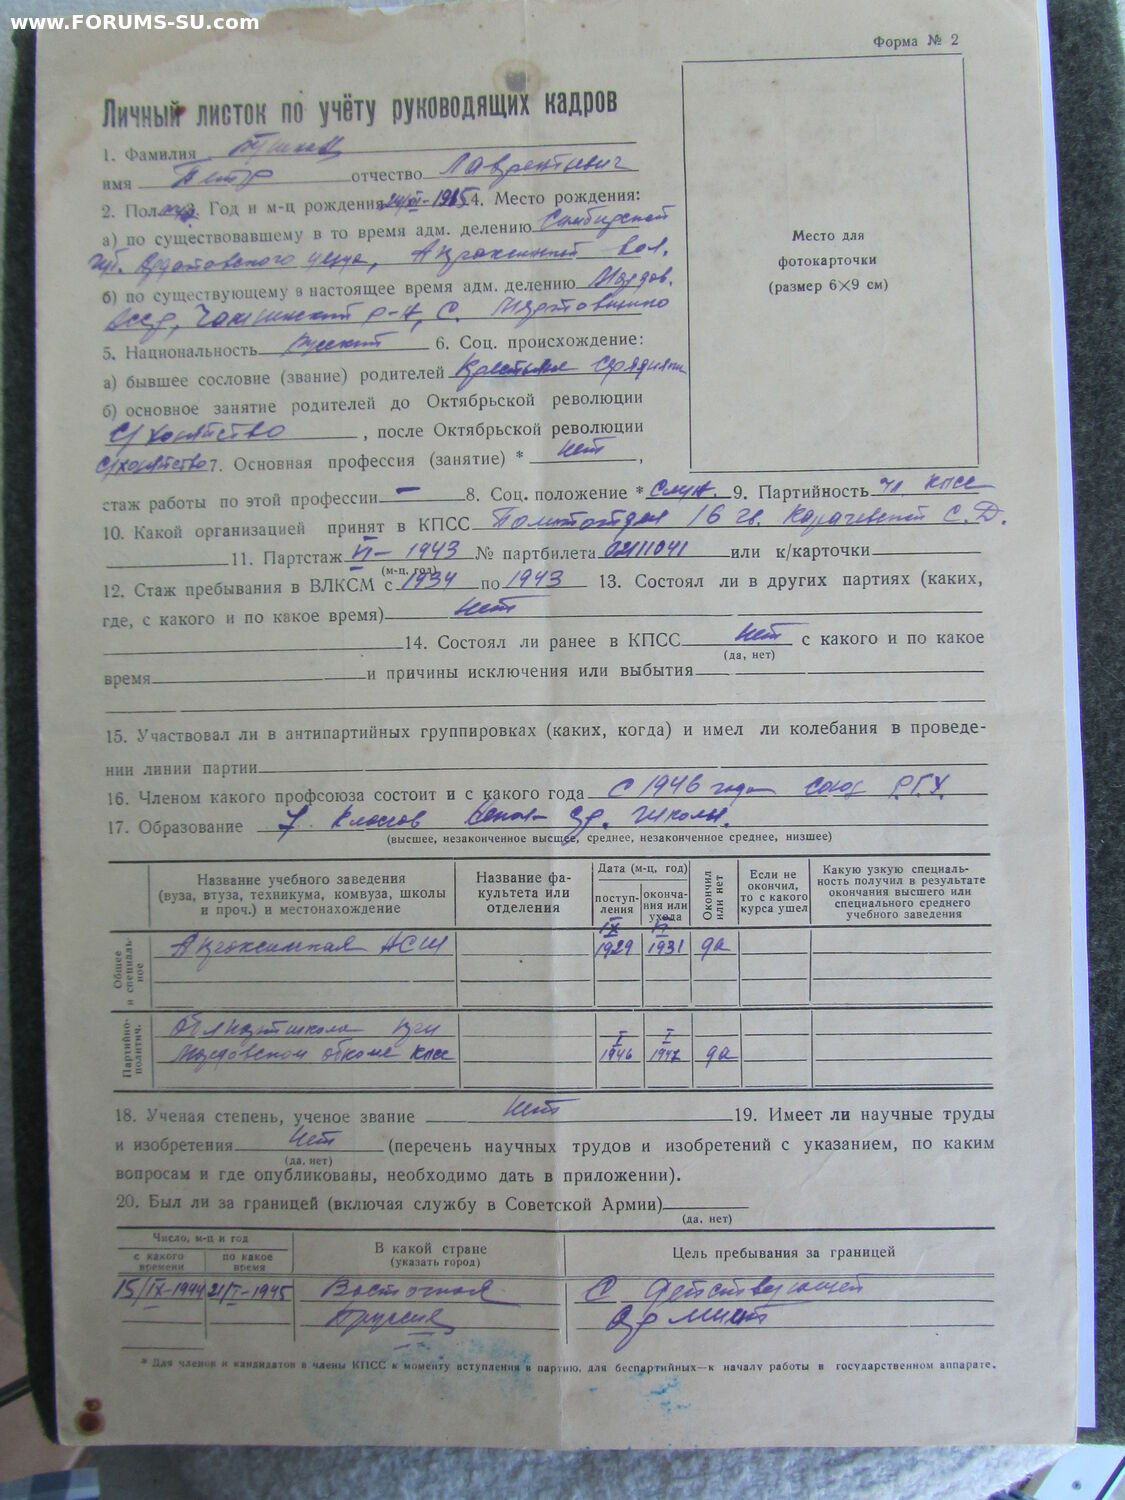 www.FORUMS-SU.com
Форма № 2
Личный листок по учёту руководящих кадров
1. Фамилия
имя Петр отчество Лаврентьевич
2. Пол муж. 3. Год и м-ц рождения 4. Место рождения:
а) по существовавшему в то время адм. делению Симбирской
губ. Ардатовского уезда, вол.
б) по существующему в настоящее время адм. делению Мордов.
АССР, р-н, с.
5. Национальность русский 6. Соц. происхождение:
а) бывшее сословие (звание) родителей Крестьяне
б) основное занятие родителей до Октябрьской революции
с/хозяйство, после Октябрьской революции
с/хозяйство 7. Основная профессия (занятие) * нет,
стаж работы по этой профессии — 8. Соц. положение * служ. 9. Партийность чл. КПСС
10. Какой организацией принят в КПСС Политотдел 16 гв. Карачевской С.Д.
11. Партстаж VI – 1943 № партбилета 02111041 или к/карточки
(м-ц, год)
12. Стаж пребывания в ВЛКСМ с 1934 по 1943 13. Состоял ли в других партиях (каких,
где, с какого и по какое время) нет
14. Состоял ли ранее в КПСС нет с какого и по какое
(да, нет)
время и причины исключения или выбытия
15. Участвовал ли в антипартийных группировках (каких, когда) и имел ли колебания в проведе-
нии линии партии
16. Членом какого профсоюза состоит и с какого года с 1946 года союз
17. Образование 7 классов ср. школы.
(высшее, незаконченное высшее, среднее, незаконченное среднее, низшее)
Название учебного заведения
(вуза, втуза, техникума, комвуза, школы
и проч.) и местонахождение
Название фа-
культета или
отделения
Дата (м-ц, год)
поступ-
ления
оконча-
ния или
ухода
Окончил
или нет
Если не
окончил,
то с какого
курса ушел
Какую узкую специаль-
ность получил в результате
окончания высшего или
специального среднего
учебного заведения
Общее
и специаль-
ное
IX VI
НСШ 1929 1931 да
Партийно-
политич.
Облпартшкола при I I
Мордовском обкоме КПСС 1946 1947 да
18. Ученая степень, ученое звание нет 19. Имеет ли научные труды
и изобретения нет (перечень научных трудов и изобретений с указанием, по каким
(да, нет)
вопросам и где опубликованы, необходимо дать в приложении).
20. Был ли за границей (включая службу в Советской Армии)
(да, нет)
Число, м-ц и год
с какого
времени
по какое
время
В какой стране
(указать город)
Цель пребывания за границей
15/IX-1944 21/I-1945 Восточная С действующей
Пруссия армией
* Для членов и кандидатов в члены КПСС к моменту вступления в партию, для беспартийных—к началу работы в государственном аппарате.
Место для
фотокарточки
(размер 6×9 см)